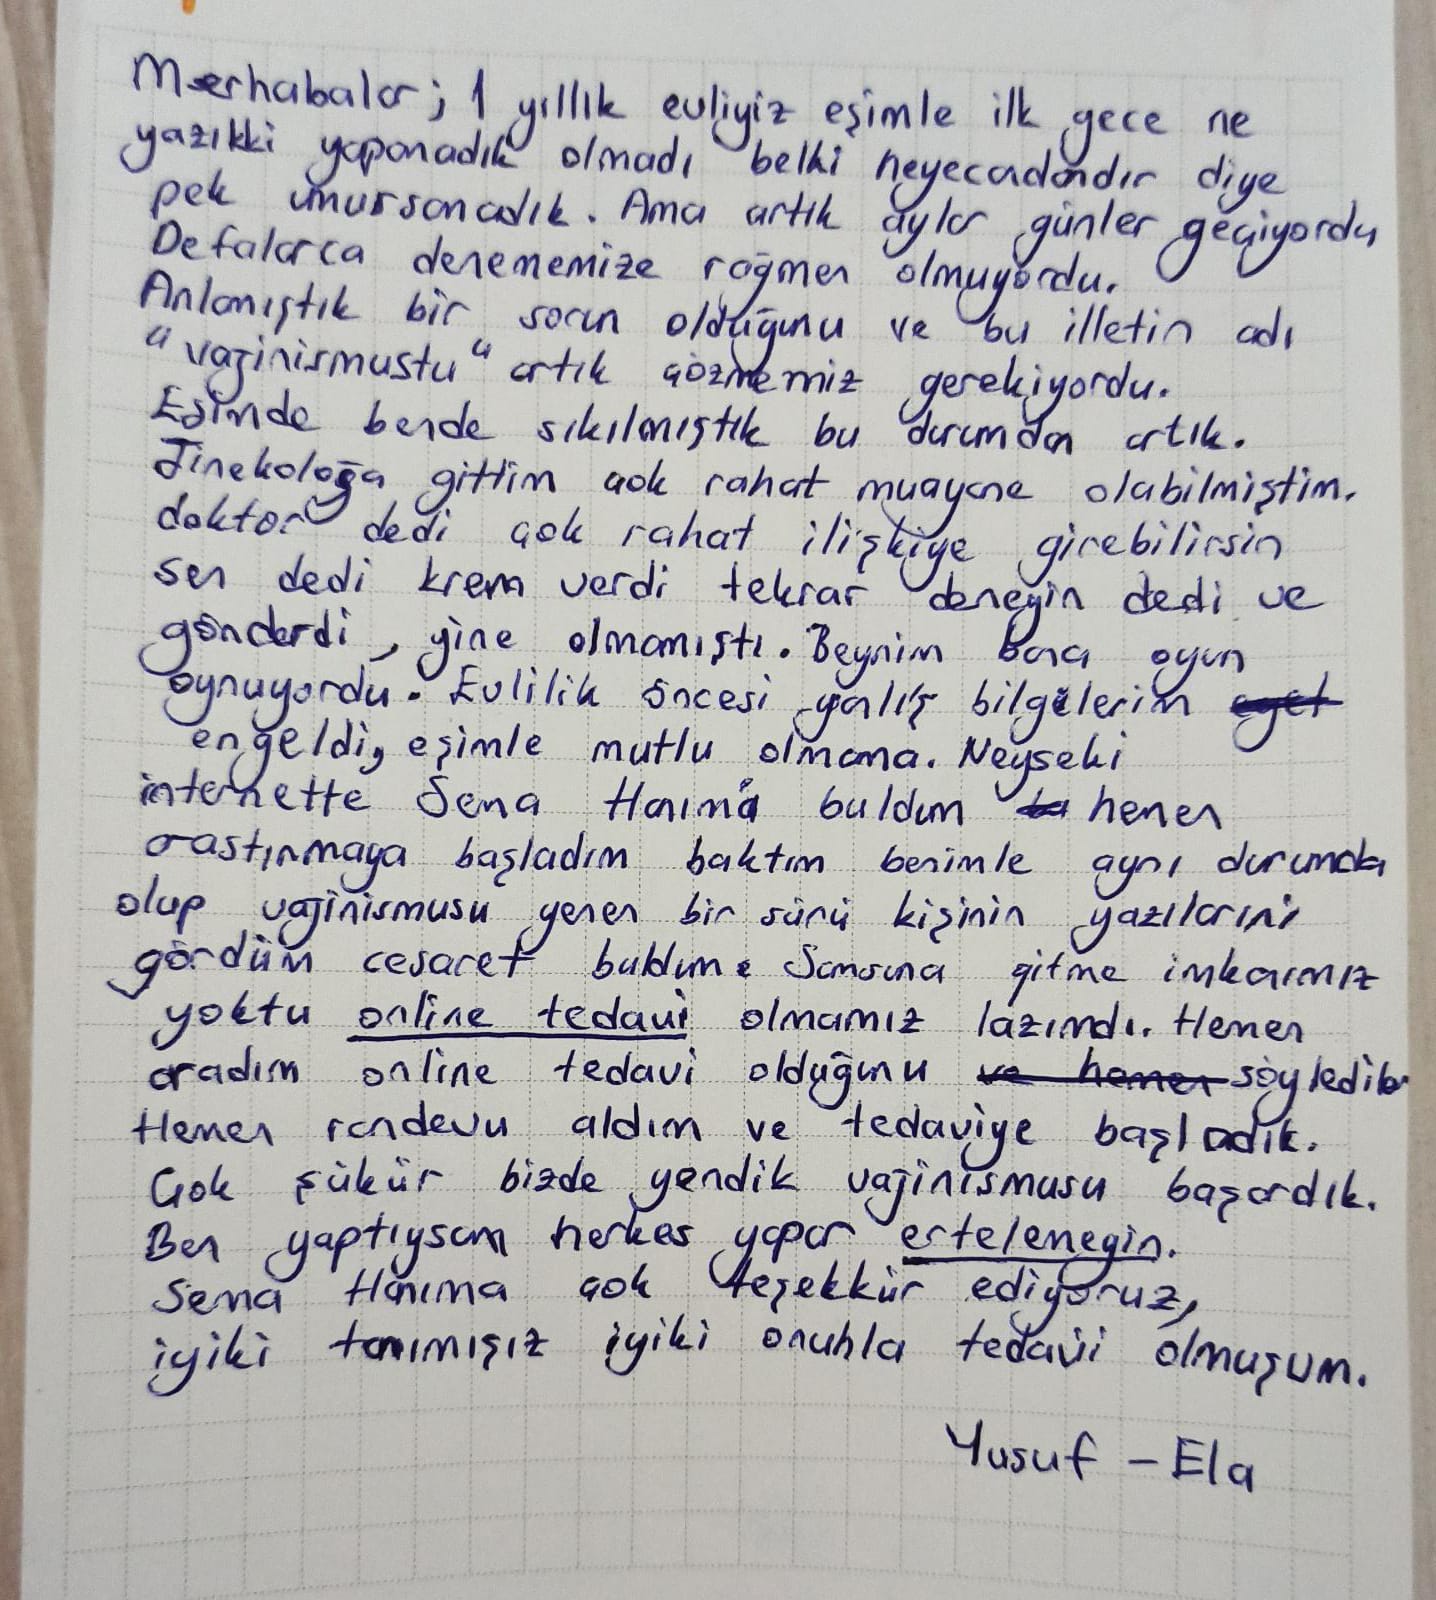 Merhabalar; 1 yıllık evliyiz eşimle ilk gece ne
yazıkki yapamadık olmadı belki heyecadandır diye
pek umursamadık. Ama artık aylar günler geçiyordu
Defalarca denememize rağmen olmuyordu.
Anlamıştık bir sorun olduğunu ve bu illetin adı
"vajinismustu" artık çözmemiz gerekiyordu.
Eşimde bende sıkılmıştık bu durumdan artık.
Jinekoloğa gittim çok rahat muayene olabilmiştim.
doktor dedi çok rahat ilişkiye girebilirsin
sen dedi krem verdi tekrar deneyin dedi ve
gönderdi, yine olmamıştı. Beynim bana oyun
oynuyordu. Evlilik öncesi yalış bilgilerim
engeldi, eşimle mutlu olmama. Neyseki
internette Sena Hanımı buldum hemen
araştırmaya başladım baktım benimle aynı durumda
olup vajinismusu yenen bir sürü kişinin yazılarını
gördüm cesaret buldum. Samsuna gitme imkanımız
yoktu online tedavi olmamız lazımdı. Hemen
aradım online tedavi olduğunu söylediler
Hemen randevu aldım ve tedaviye başladık.
Çok şükür bizde yendik vajinismusu başardık.
Ben yaptıysam herkes yapar ertelemeyin.
Sena Hanıma çok teşekkür ediyoruz,
iyiki tanımışız iyiki onunla tedavi olmuşum.
Yusuf - Ela